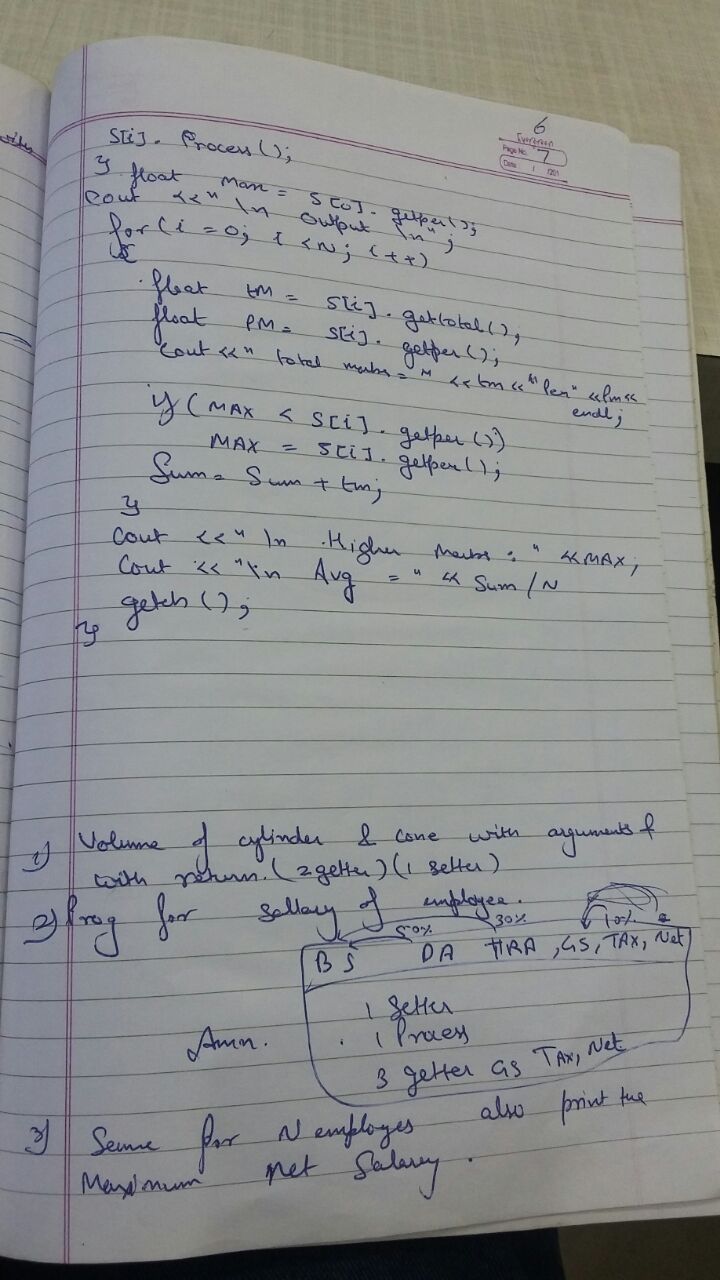 6
Evergreen
Page No. 7
Date / /201
S[i]. Process();
}
float max = S[0]. getper();
Cout <<" \n output \n";
for(i = 0; i <N; i++)
{
float tM = S[i]. gettotal();
float PM = S[i]. getper();
Cout <<" total marks = " <<tm<<"Per" <<Pm<<
endl;
if (MAX < S[i]. getper())
MAX = S[i]. getper();
Sum = Sum + tm;
}
Cout <<" \n Higher marks : " <<MAX;
Cout << "\n Avg = " << Sum/N
getch();
}
1) Volume of cylinder & cone with arguments &
with return. (2 getter) (1 setter)
2) Prog for sallary of employee.
50% 30% 10%
BS DA HRA, GS, TAX, Net
1 Setter
1 Process
3 getter GS TAX, Net
3) Same for N employes also print the
Maximum net Salary.